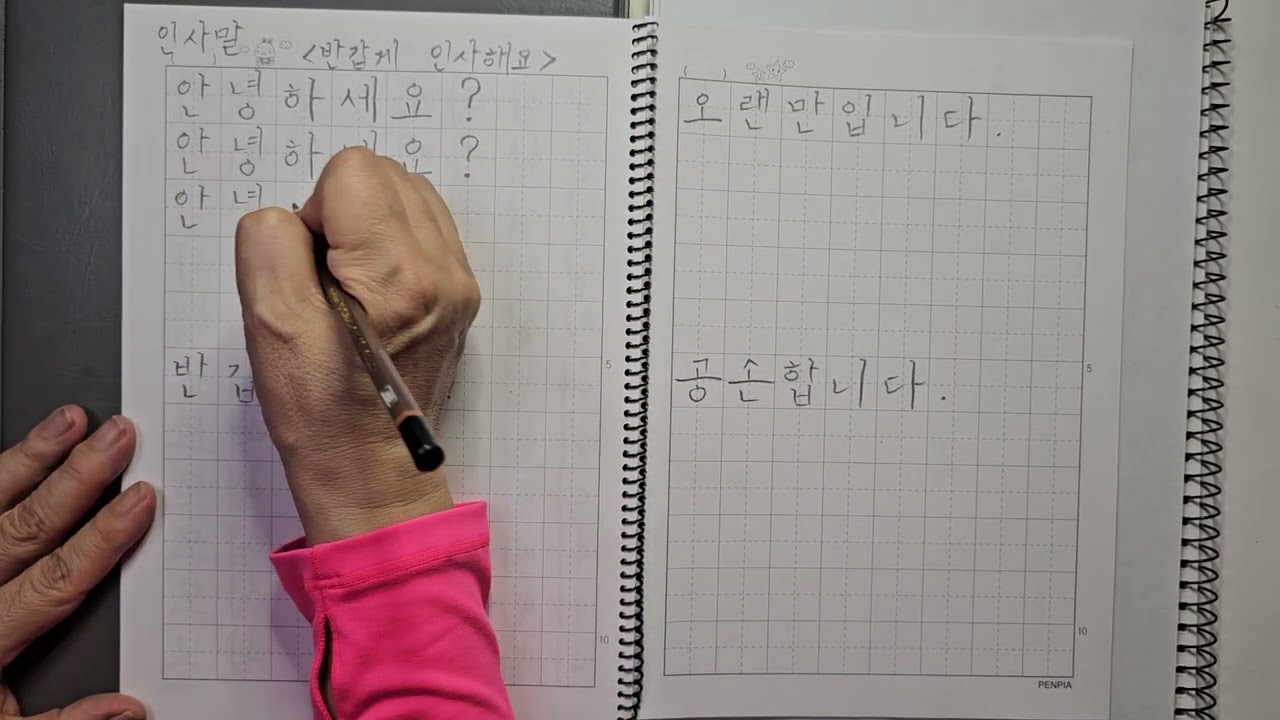 인사말
<반갑게 인사해요>
안녕하세요?
안녕하 요?
안녕
반
5
10
오랜만입니다.
공손합니다.
5
10
PENPIA